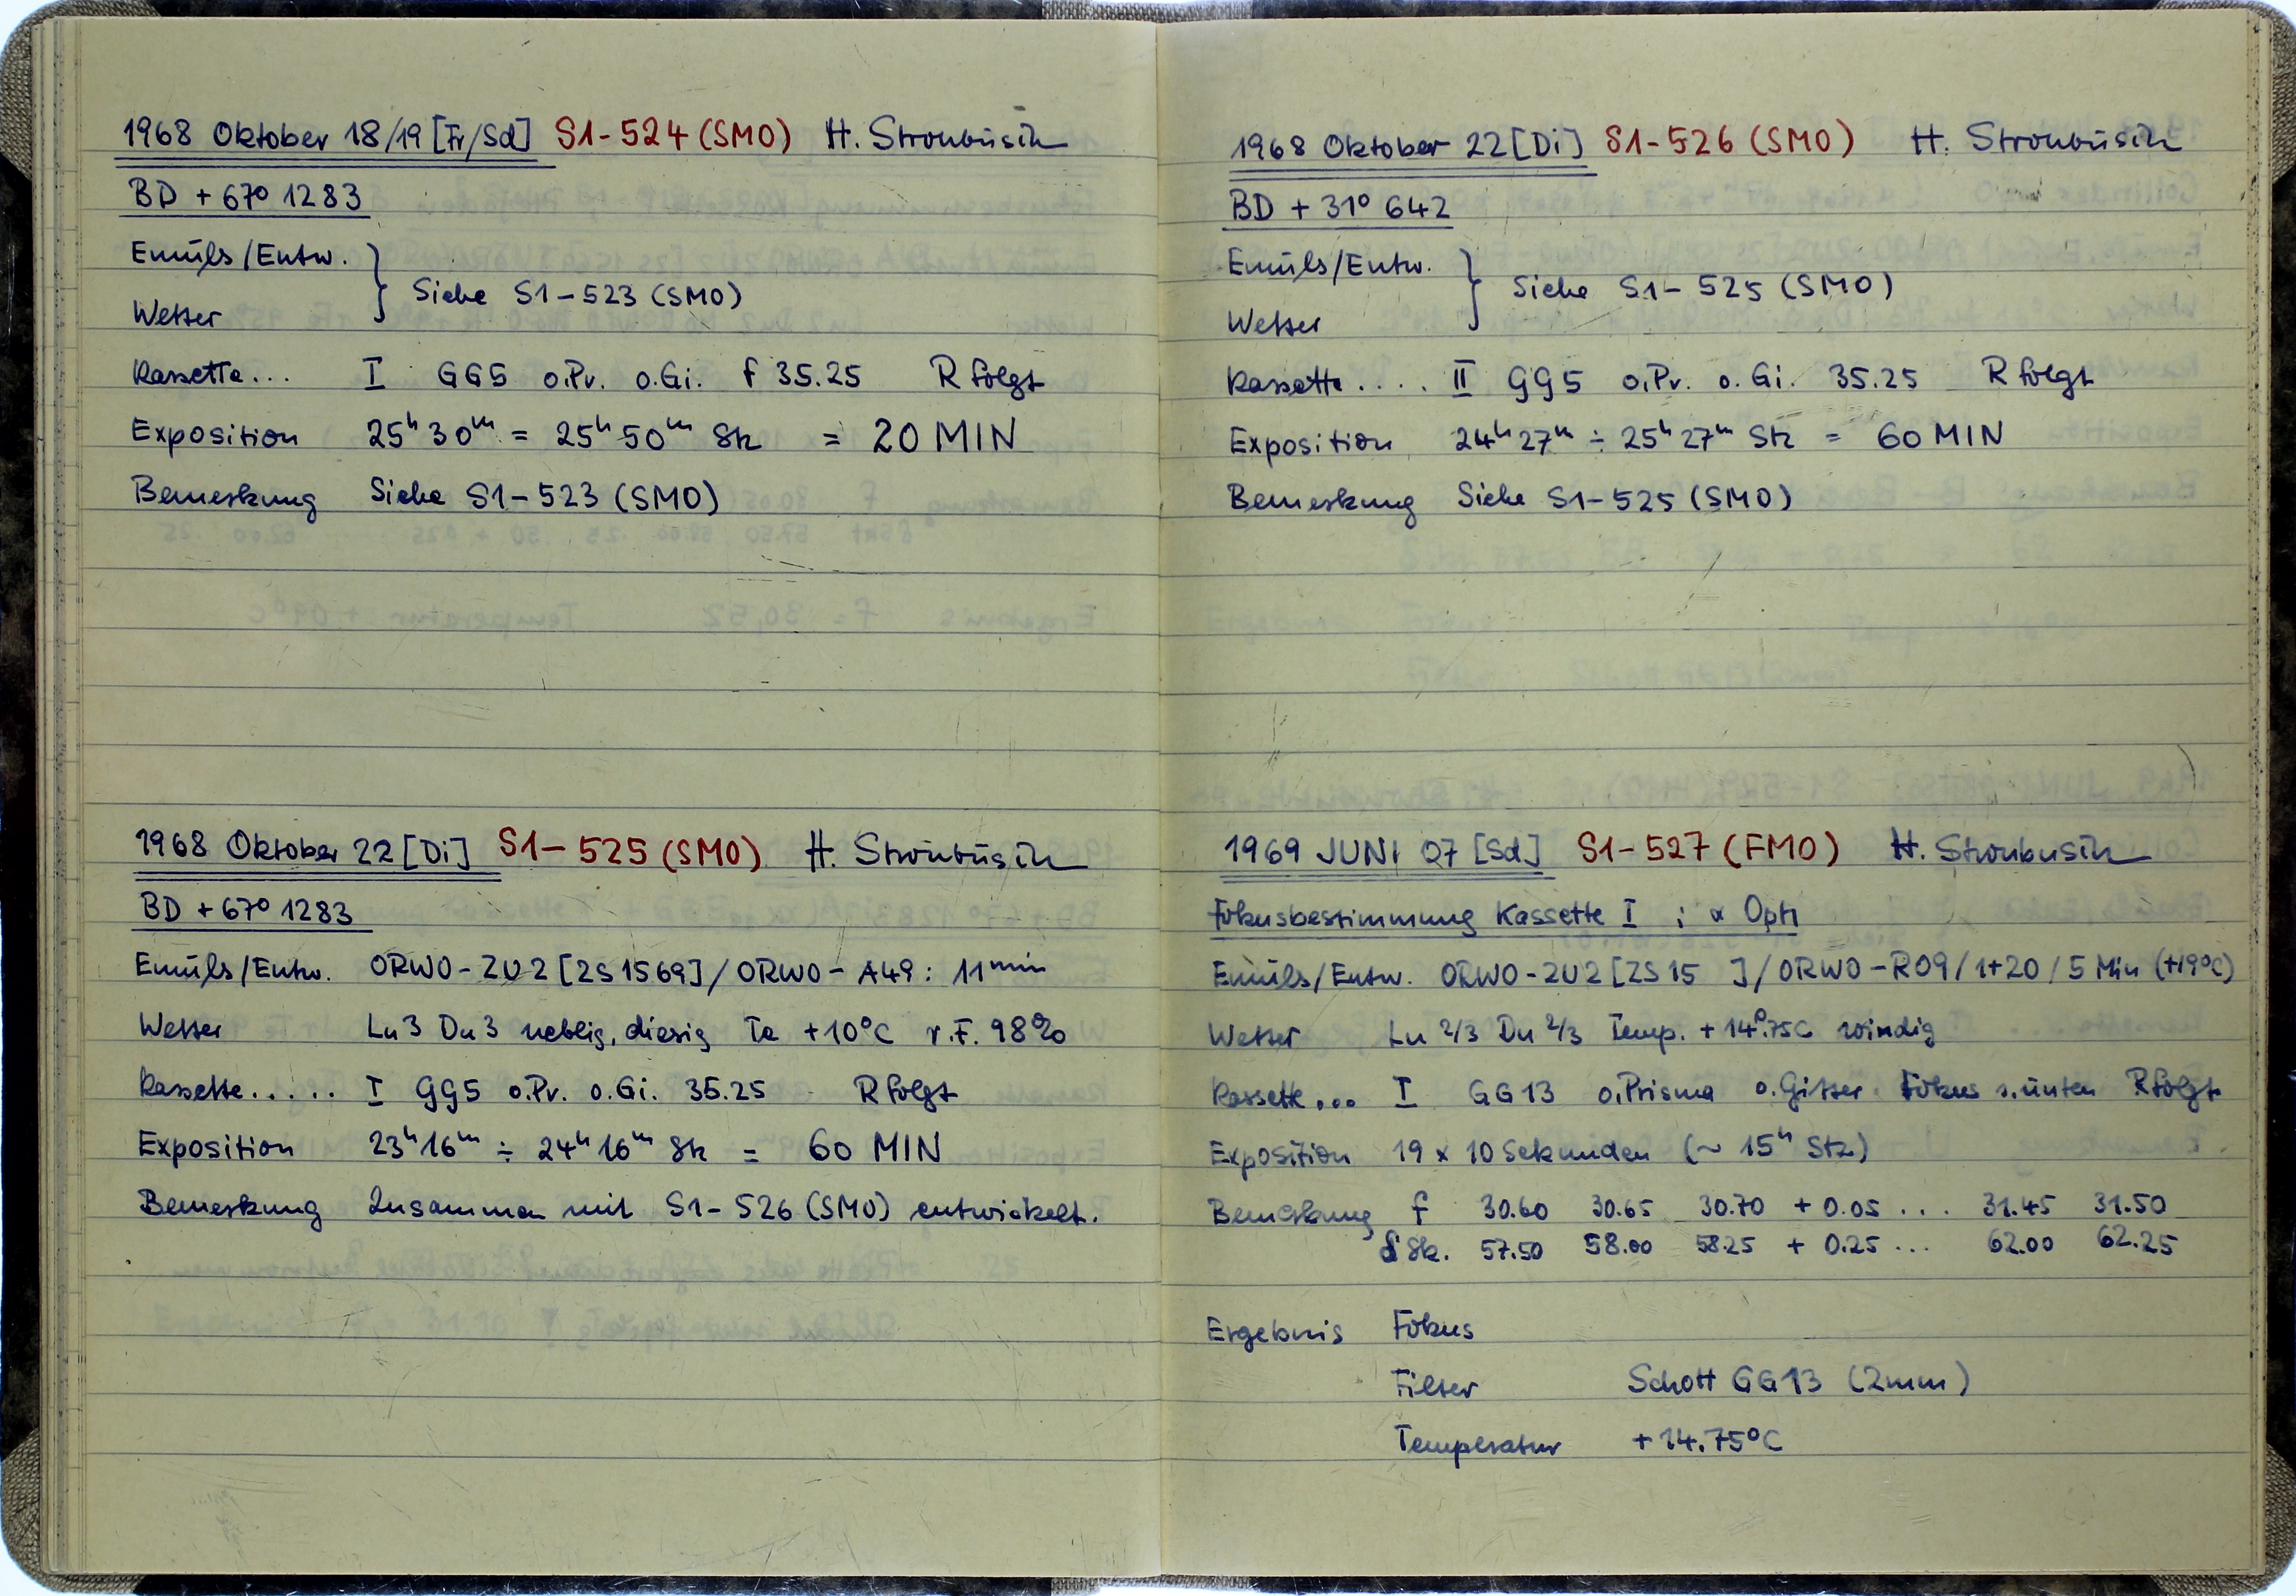 1968 Oktober 18/19 [Fr/Sd] S1-524 (SMO) H. Stroubusih
BD + 67° 1283
Emuls/Entw.
Wetter
} Siehe S1-523 (SMO)
Kassette... I GG5 o.Pr. o.Gi. f 35.25 R folgt
Exposition 25ʰ 30ᵐ = 25ʰ 50ᵐ Stz = 20 MIN
Bemerkung Siehe S1-523 (SMO)
1968 Oktober 22 [Di] S1-525 (SMO) H.
BD + 67° 1283
Emuls/Entw. ORWO-ZU2 [ZS 1569] / ORWO-A49: 11 min
Wetter Lu3 Du3 neblig, diesig Te +10°C r.F. 98%
Kassette..... I GG5 o.Pr. o.Gi. 35.25 R folgt
Exposition 23ʰ 16ᵐ ÷ 24ʰ 16ᵐ Stz = 60 MIN
Bemerkung Zusammen mit S1-526 (SMO) entwickelt.
1968 Oktober 22 [Di] S1-526 (SMO) H.
BD + 31° 642
Emuls/Entw.
Wetter
} Siehe S1-525 (SMO)
Kassette.... II GG5 o.Pr. o.Gi. 35.25 R folgt
Exposition 24ʰ 27ᵐ ÷ 25ʰ 27ᵐ Stz = 60 MIN
Bemerkung Siehe S1-525 (SMO)
1969 JUNI 07 [Sd] S1-527 (FMO) H.
Fokusbestimmung Kassette I ; α Oph
Emuls/Entw. ORWO-ZU2 [ZS 15 ] / ORWO-R09 / 1+20 / 5 Min (+19°C)
Wetter Lu 2/3 Du 2/3 Temp. +14°.75C windig
Kassette... I GG13 o.Prisma o.Gitter Fokus s.unten R folgt
Exposition 19 x 10 Sekunden (~ 15ʰ Stz)
Bemerkung f 30.60 30.65 30.70 + 0.05 ... 31.45 31.50
δ Sk. 57.50 58.00 58.25 + 0.25 ... 62.00 62.25
Ergebnis Fokus
Filter Schott GG13 (2mm)
Temperatur +14.75°C